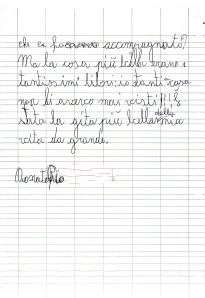 che ci accompagnato?
Ma la cosa più bella erano i
tantissimi libri: io tanti cosa
non li avevo mai visti!!! È
stata la gita più bella della mia
vita da grande.
Donato Pio